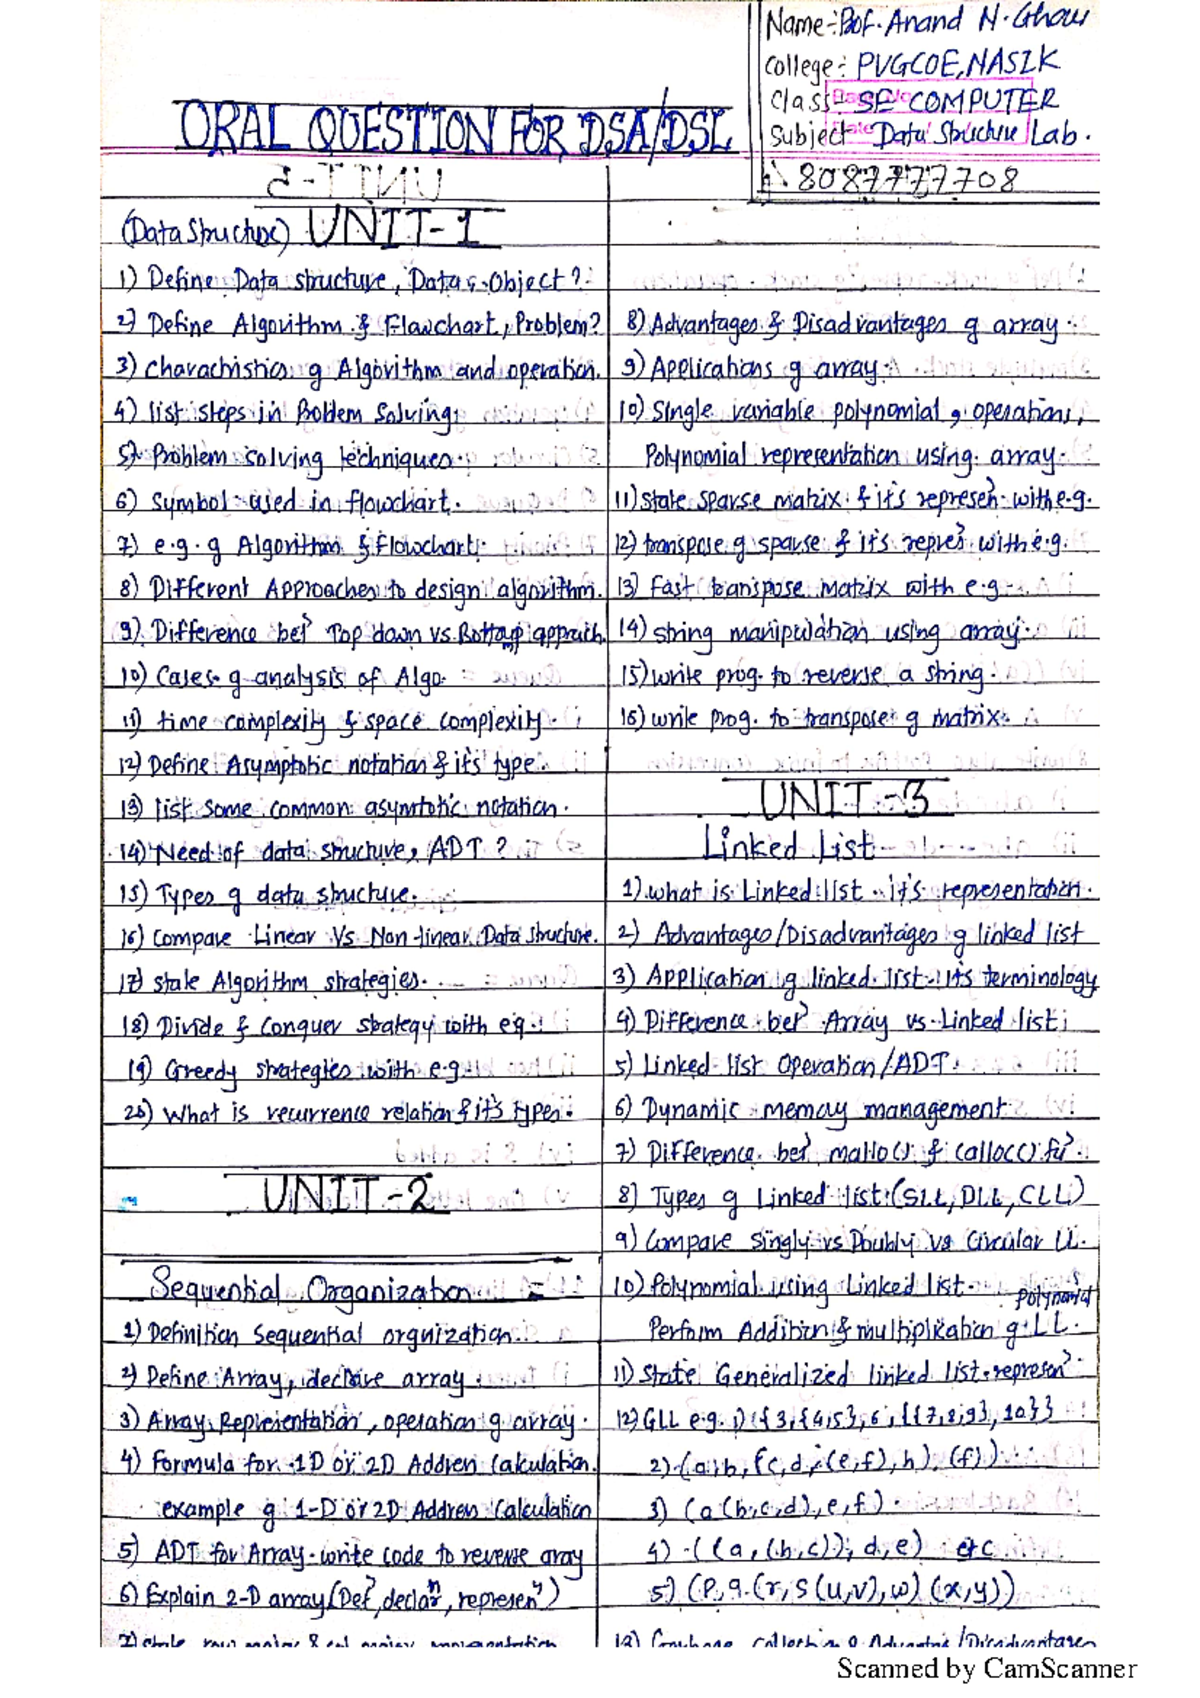 Name:- Prof. Anand N. Ghari
College:- PVGCOE, NASIK
Class:- SE COMPUTER
Subject Data Structure Lab.
8087777708
ORAL QUESTION FOR DSA/DSL
(Data Structure) UNIT-1
1) Define Data structure, Data, Object?
2) Define Algorithm & Flowchart, Problem?
3) Charachistics of Algorithm and operation.
4) list steps in Problem Solving.
5) Problem solving techniques.
6) Symbol used in flowchart.
7) e.g. of Algorithm & Flowchart.
8) Different Approaches to design algorithm.
9) Difference betn Top down vs. Bottom up approch.
10) Cases of analysis of Algo.
11) time complexity & space complexity.
12) Define Asymptotic notation & it's type.
13) list some common asymtotic notation.
14) Need of data structure, ADT?
15) Types of data structure.
16) Compare Linear Vs Non-linear Data Structure.
17) state Algorithm strategies.
18) Divide & Conquer strategy with eg.
19) Greedy strategies with e.g
20) What is recurrence relation & it's types.
UNIT-2
Sequential Organization
1) Definition Sequential orgnization.
2) Define Array, declare array.
3) Array Representation, operation of array.
4) Formula for 1D or 2D Address Calculation.
example of 1-D or 2D Address Calculation
5) ADT for Array. write code to reverse array
6) Explain 2-D array (Defn, declarn, represenn)
7) state row major & col major representation
8) Advantages & Disadvantages of array.
9) Applications of array.
10) Single variable polynomial, operations,
Polynomial representation using array.
11) state sparse matrix & it's represen. with e.g.
12) transpose of sparse & it's repres with e.g.
13) Fast transpose matrix with e.g.
14) string manipulation using array.
15) write prog. to reverse a string.
16) write prog. to transpose of matrix.
UNIT-3
Linked List
1) what is Linked list it's representation.
2) Advantages/Disadvantages of linked list
3) Application of linked list its terminology
4) Difference betn Array vs. Linked list
5) Linked list Operation/ADT.
6) Dynamic memory management
7) Difference betn malloc() & calloc() fun.
8) Types of Linked list: (SLL, DLL, CLL)
9) Compare Singly vs Doubly vs Circular LL.
10) Polynomial using Linked list.
Perform Addition & multiplication of polynomial LL.
11) State Generalized linked list represen.
12) GLL e.g. 1) {3,{4,5},6,{{7,8,9},10}}
2) (a,b,(c,d,(e,f),h),(f))
3) (a(b,c,d),e,f)
4) ((a,(b,c)),d,e) etc
5) (P,q(r,s(u,v),w)(x,y))
13) Garbage collection & Advantes/Disadvantages
Scanned by CamScanner